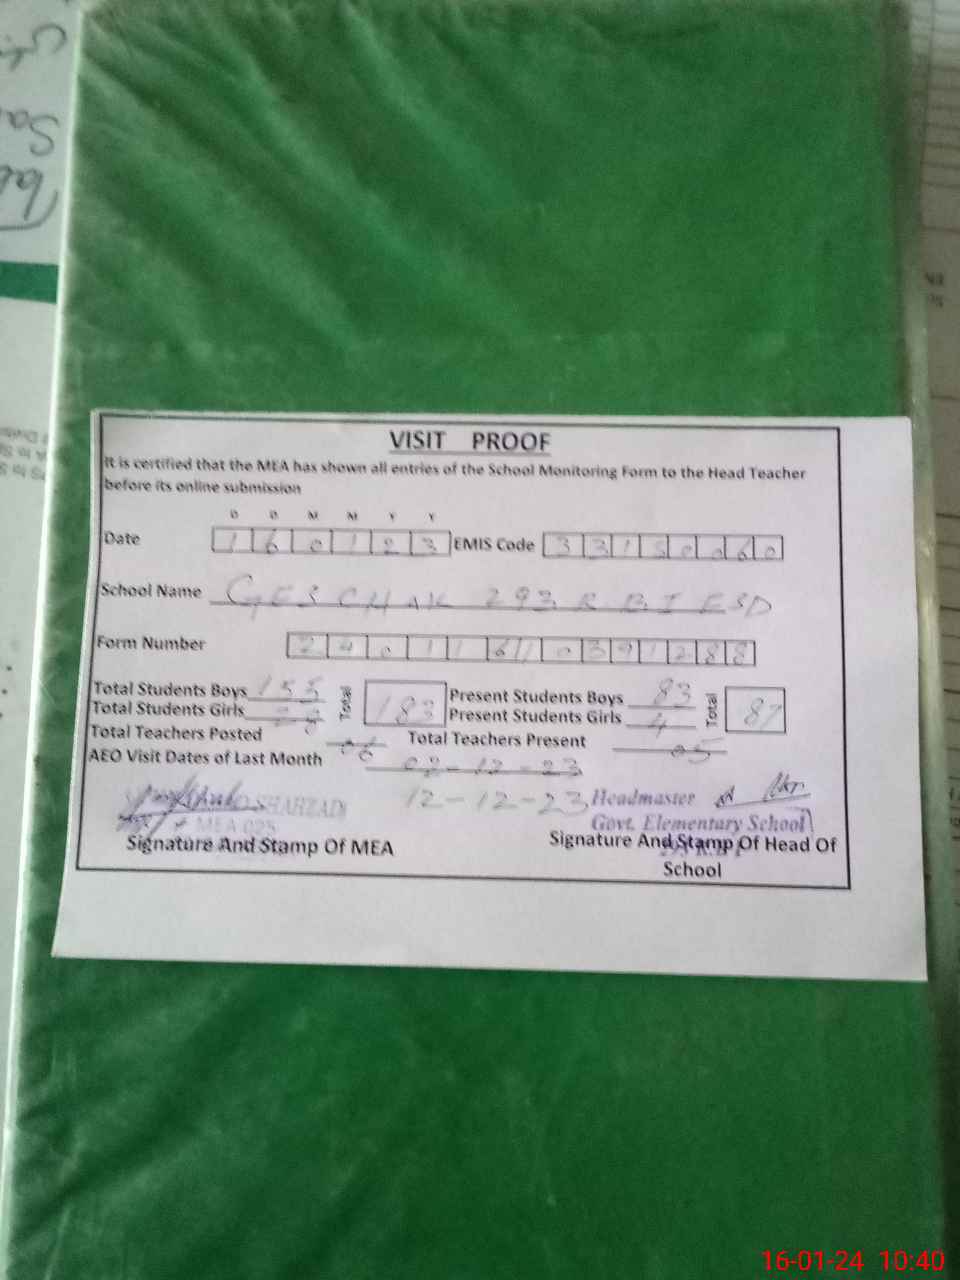 VISIT PROOF
It is certified that the MEA has shown all entries of the School Monitoring Form to the Head Teacher
before its online submission
D D M M Y Y
Date 1 6 0 1 2 3 EMIS Code 3 3 1 5 0 0 6 0
School Name GES CHAK 293 R.B I FSD
Form Number
Total Students Boys 155 Total 183 Present Students Boys 83 Total 87
Total Students Girls 28 Present Students Girls 4
Total Teachers Posted 06 Total Teachers Present 05
AEO Visit Dates of Last Month 02-12-23
12-12-23
SHAHZAD Headmaster
MEA 025 Govt. Elementary School
Signature And Stamp Of MEA Signature And Stamp Of Head Of
School
16-01-24 10:40